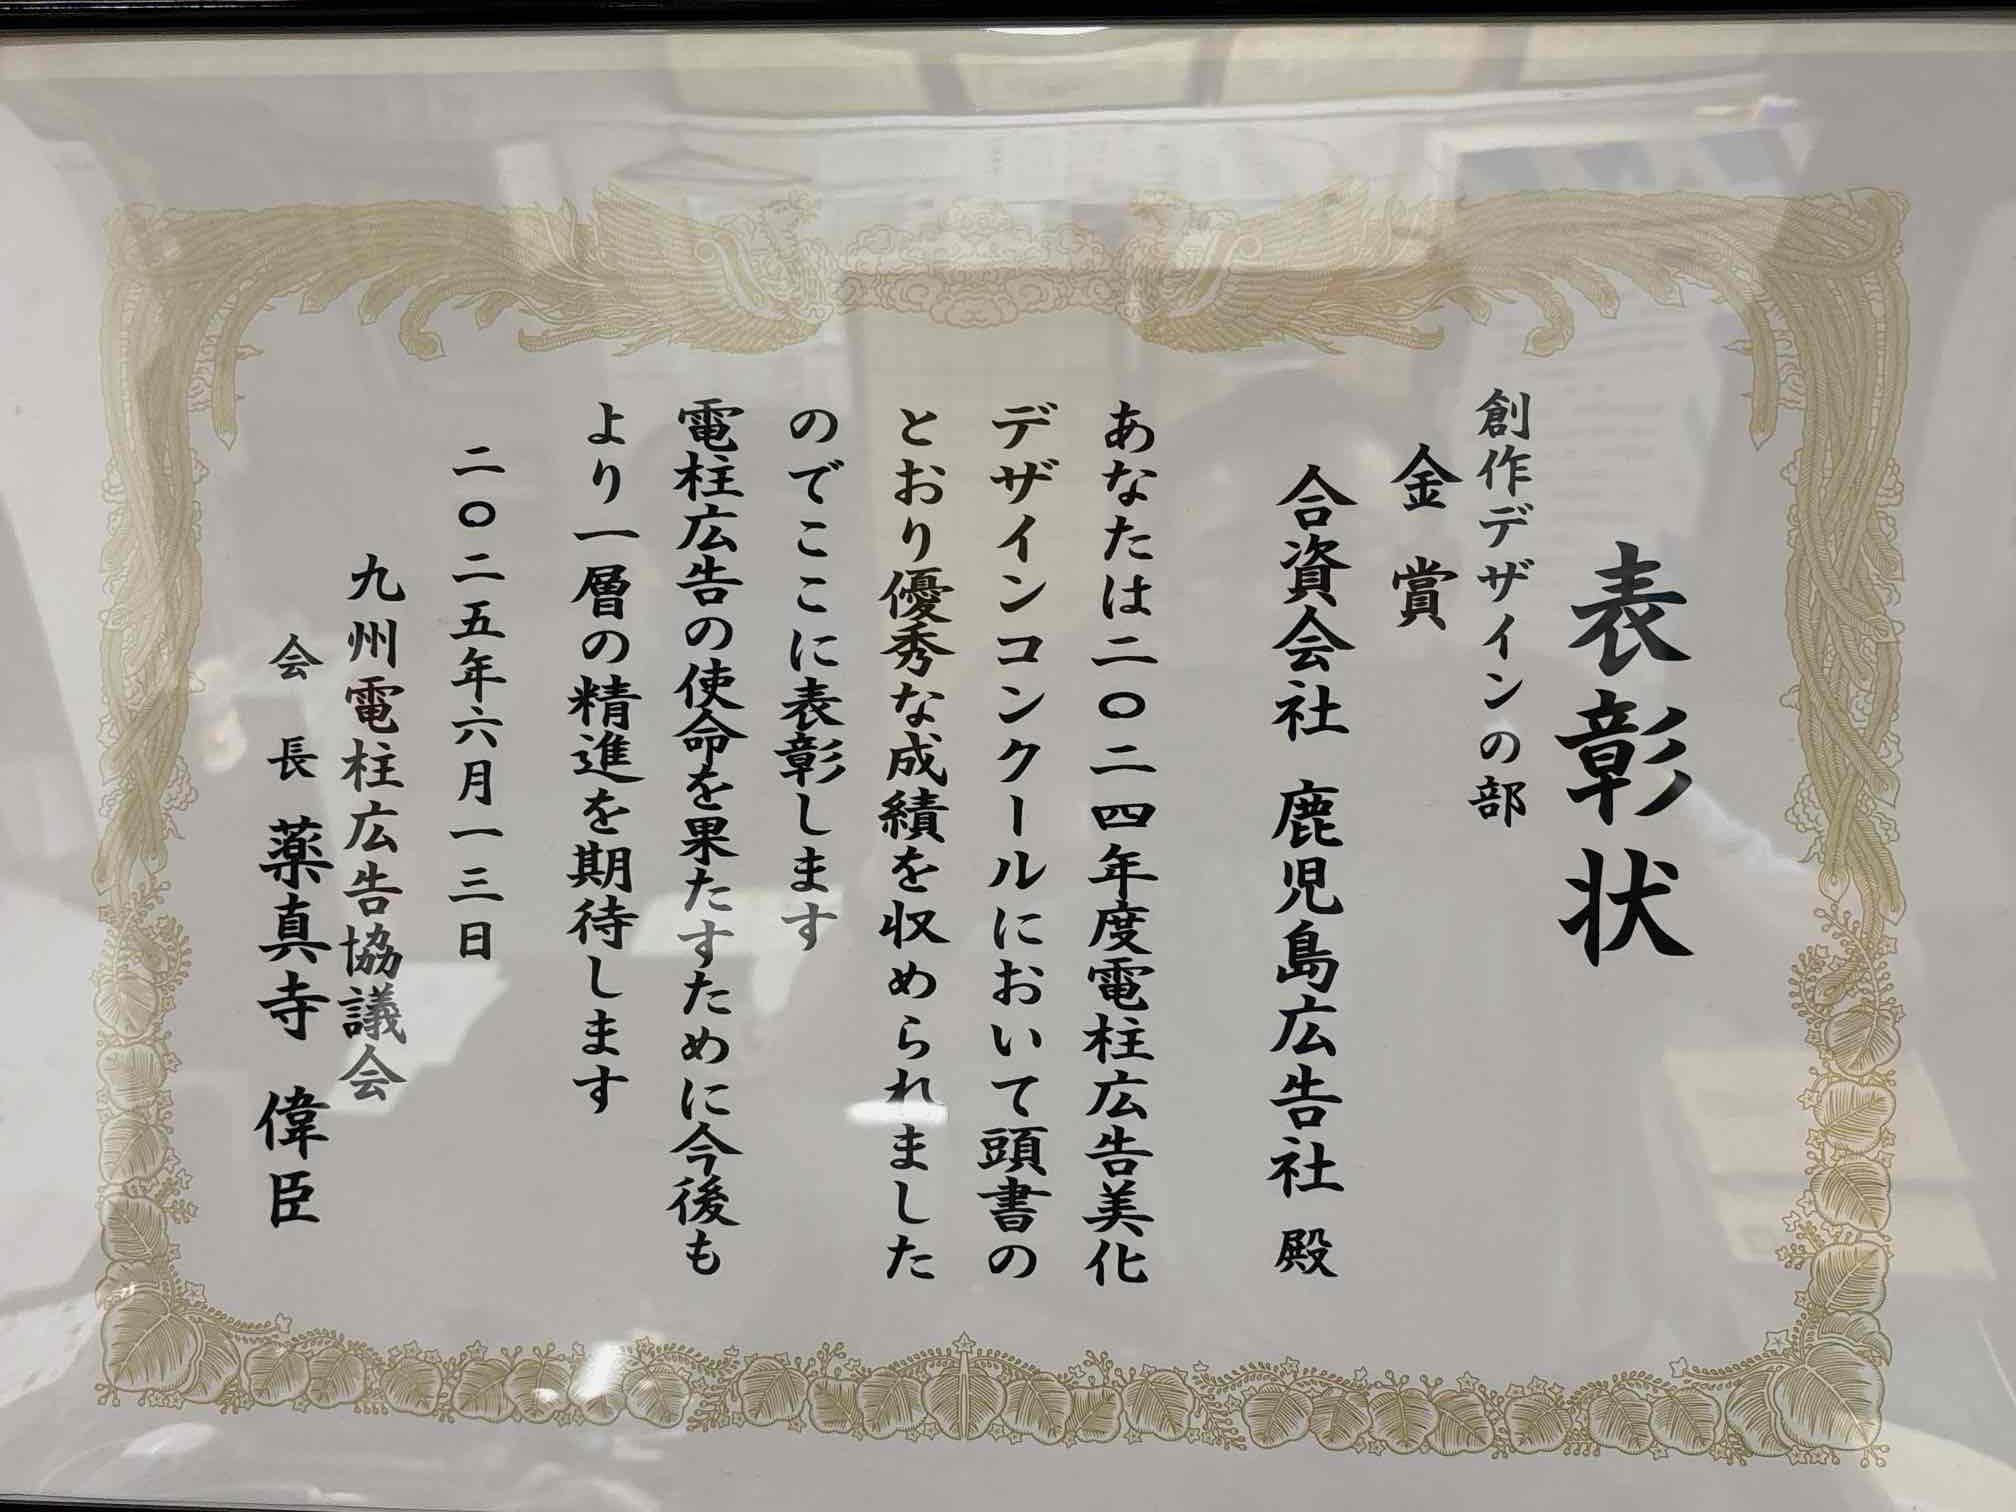 表彰状
創作デザインの部
金賞
合資会社 鹿児島広告社 殿
あなたは二〇二四年度電柱広告美化
デザインコンクールにおいて頭書の
とおり優秀な成績を収められました
のでここに表彰します
電柱広告の使命を果たすために今後も
より一層の精進を期待します
二〇二五年六月一三日
九州電柱広告協議会
会長 薬真寺 偉臣